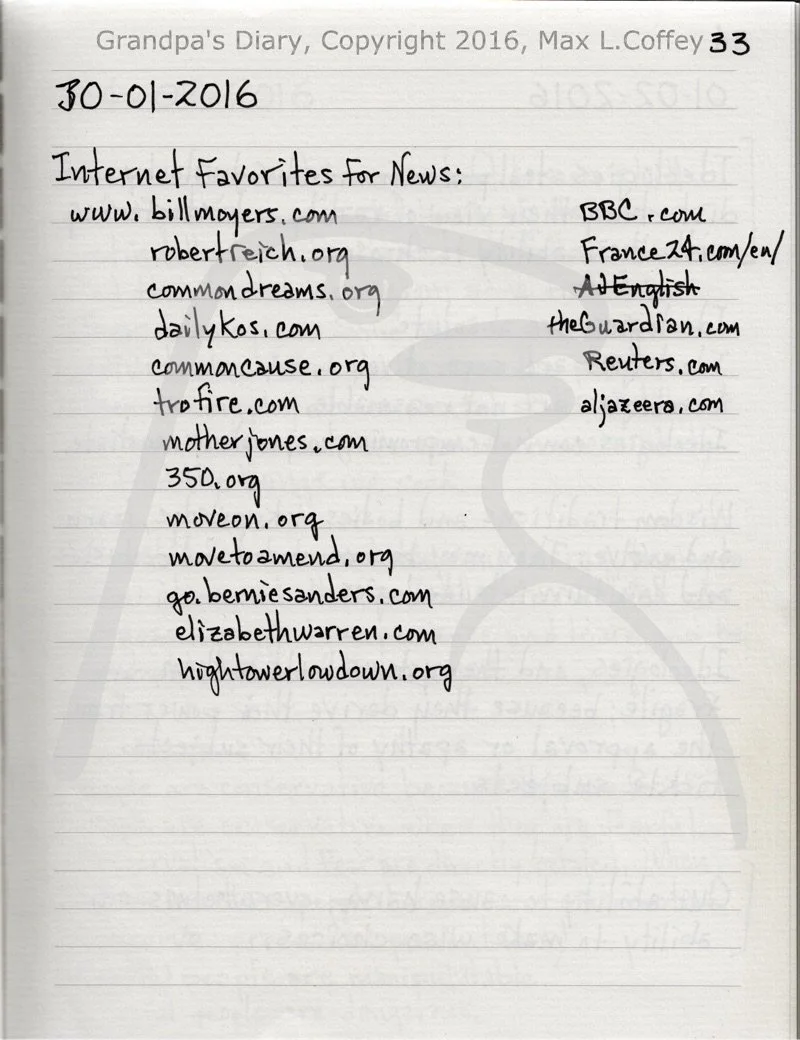 Grandpa's Diary, Copyright 2016, Max L.Coffey 33
30-01-2016
Internet Favorites for News:
www. billmoyers.com
robertreich.org
commondreams.org
dailykos.com
commoncause.org
trofire.com
motherjones.com
350.org
moveon.org
movetoamend.org
go.berniesanders.com
elizabethwarren.com
hightowerlowdown.org
BBC.com
France24.com/en/
AJEnglish
theGuardian.com
Reuters.com
aljazeera.com